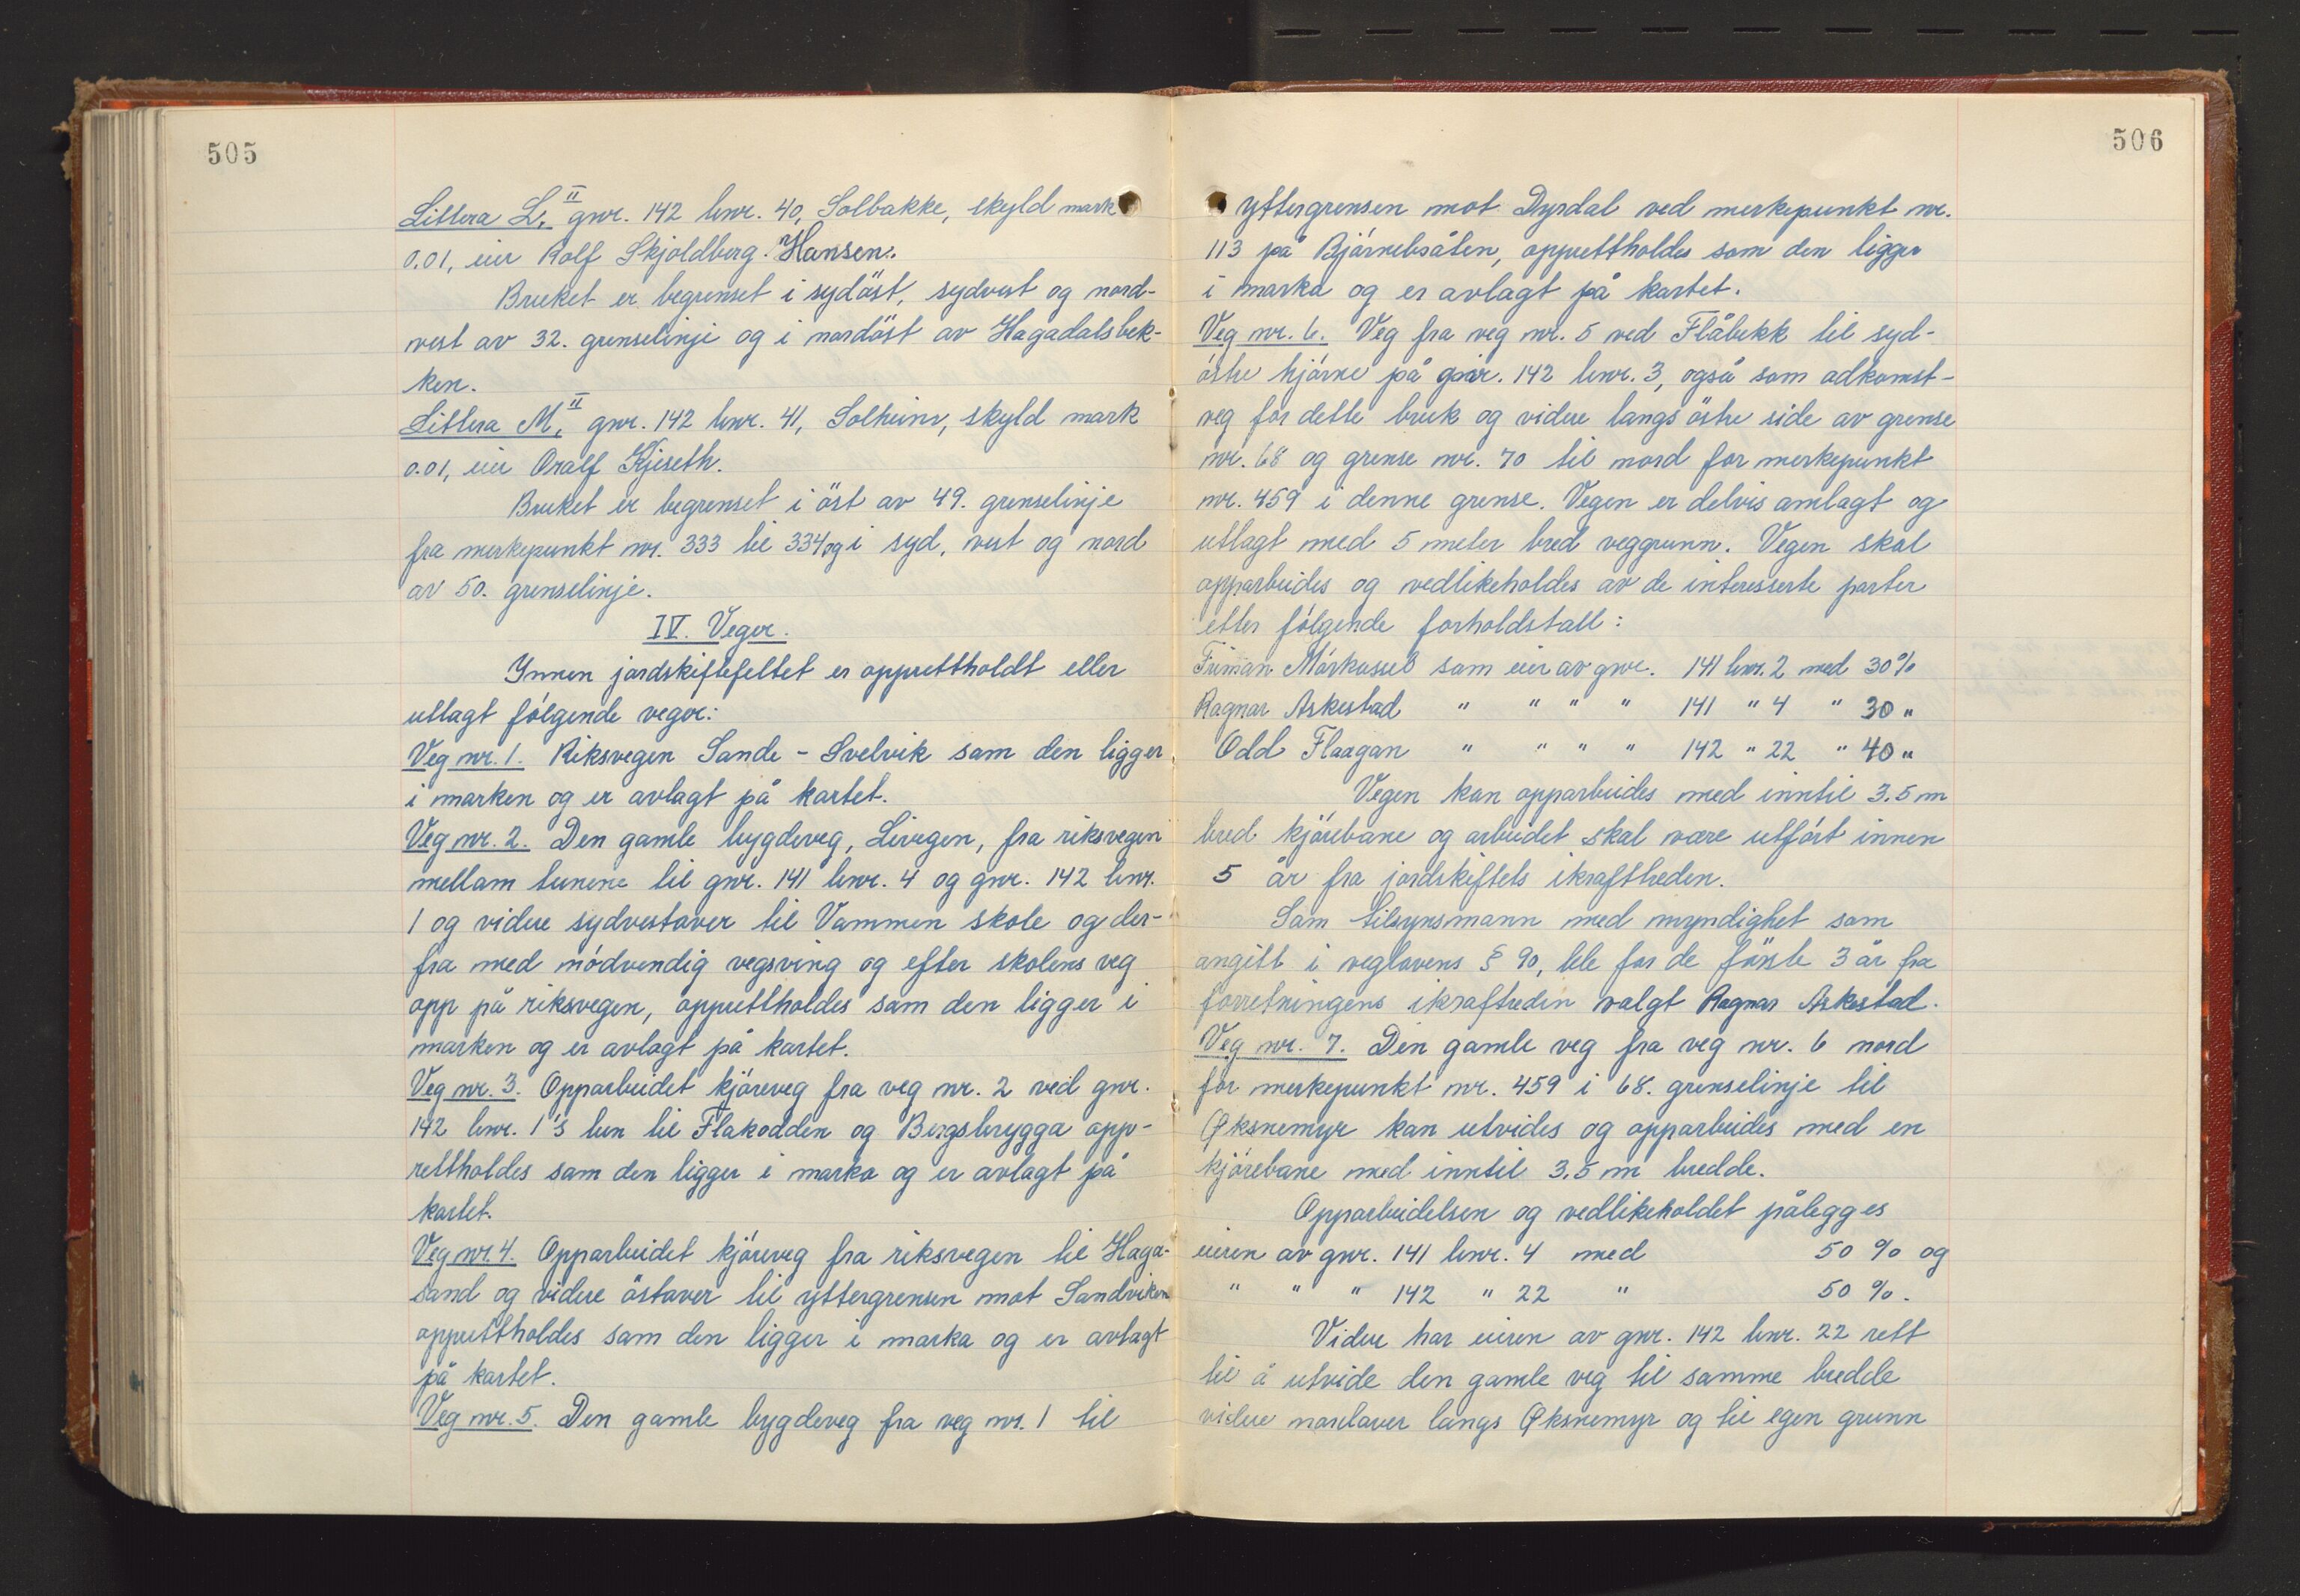 505
Littera L.II gnr. 142 bnr. 40, Solbakke, skyld mark
0.01, eier Rolf Skjoldborg-Hansen.
Bruket er begrenset i sydöst, sydvest og nord-
vest av 32. grenselinje og i nordöst av Hagadalsbek-
ken.
Littera M.II gnr. 142 bnr. 41, Solheim, skyld mark
0.01, eier Oralf Kjeseth.
Bruket er begrenset i öst av 49. grenselinje
fra merkepunkt nr. 333 til 334 og i syd, vest og nord
av 50. grenselinje.
IV. Veger.
Innen jordskiftefeltet er opprettholdt eller
utlagt fölgende veger:
Veg nr. 1. Riksvegen Sande - Svelvik som den ligger
i marken og er avlagt på kartet.
Veg nr. 2. Den gamle bygdeveg, Livegen, fra riksvegen
mellom tunene til gnr. 141 bnr. 4 og gnr. 142 bnr.
1 og videre sydvestover til Vammen skole og der-
fra med nödvendig vegsving og efter skolens veg
opp på riksvegen, opprettholdes som den ligger i
marken og er avlagt på kartet.
Veg nr. 3. Opparbeidet kjöreveg fra veg nr. 2 ved gnr.
142 bnr. 1's tun til Flakodden og Bergsbrygga opp-
rettholdes som den ligger i marka og er avlagt på
kartet.
Veg nr. 4. Opparbeidet kjöreveg fra riksvegen til Haga-
sand og videre östover til yttergrensen mot Sandviken
opprettholdes som den ligger i marka og er avlagt
på kartet.
Veg nr. 5. Den gamle bygdeveg fra veg nr. 1 til
506
yttergrensen mot Dyrdal ved merkepunkt nr.
113 på Bjørnebsåten, opprettholdes som den ligger
i marka og er avlagt på kartet.
Veg nr. 6. Veg fra veg nr. 5 ved Flåbekk til syd-
östre hjörne på gnr. 142 bnr. 3, også som adkomst-
veg for dette bruk og videre langs östre side av grense
nr. 68 og grense nr. 70 til nord for merkepunkt
nr. 459 i denne grense. Vegen er delvis omlagt og
utlagt med 5 meter bred veggrunn. Vegen skal
opparbeides og vedlikeholdes av de interesserte parter
etter fölgende forholdstall:
Friman Mörkassel som eier av gnr. 141 bnr. 2 med 30 %
Ragnar Askestad " " " " 141 " 4 " 30 "
Odd Flaagan " " " " 142 " 22 " 40 "
Vegen kan opparbeides med inntil 3.5 m
bred kjörebane og arbeidet skal være utfört innen
5 år fra jordskiftets ikrafttreden.
Som tilsynsmann med myndighet som
angitt i veglovens § 90, ble for de förste 3 år fra
forretningens ikrafttreden valgt Ragnar Askestad.
Veg nr. 7. Den gamle veg fra veg nr. 6 nord
for merkepunkt nr. 459 i 68. grenselinje til
Øksnemyr kan utvides og opparbeides med en
kjörebane med inntil 3.5 m bredde.
Opparbeidelsen og vedlikeholdet pålegges
eieren av gnr. 141 bnr. 4 med 50 % og
" " " 142 " 22 " 50 %.
Videre har eieren av gnr. 142 bnr. 22 rett
til å utvide den gamle veg til samme bredde
videre nordover langs Øksnemyr og til egen grunn